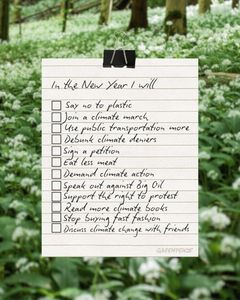 In the New Year I will
Say no to plastic
Join a climate march
Use public transportation more
Debunk climate deniers
Sign a petition
Eat less meat
Demand climate action
Speak out against Big Oil
Support the right to protest
Read more climate books
Stop buying fast fashion
Discuss climate change with friends
GREENPEACE